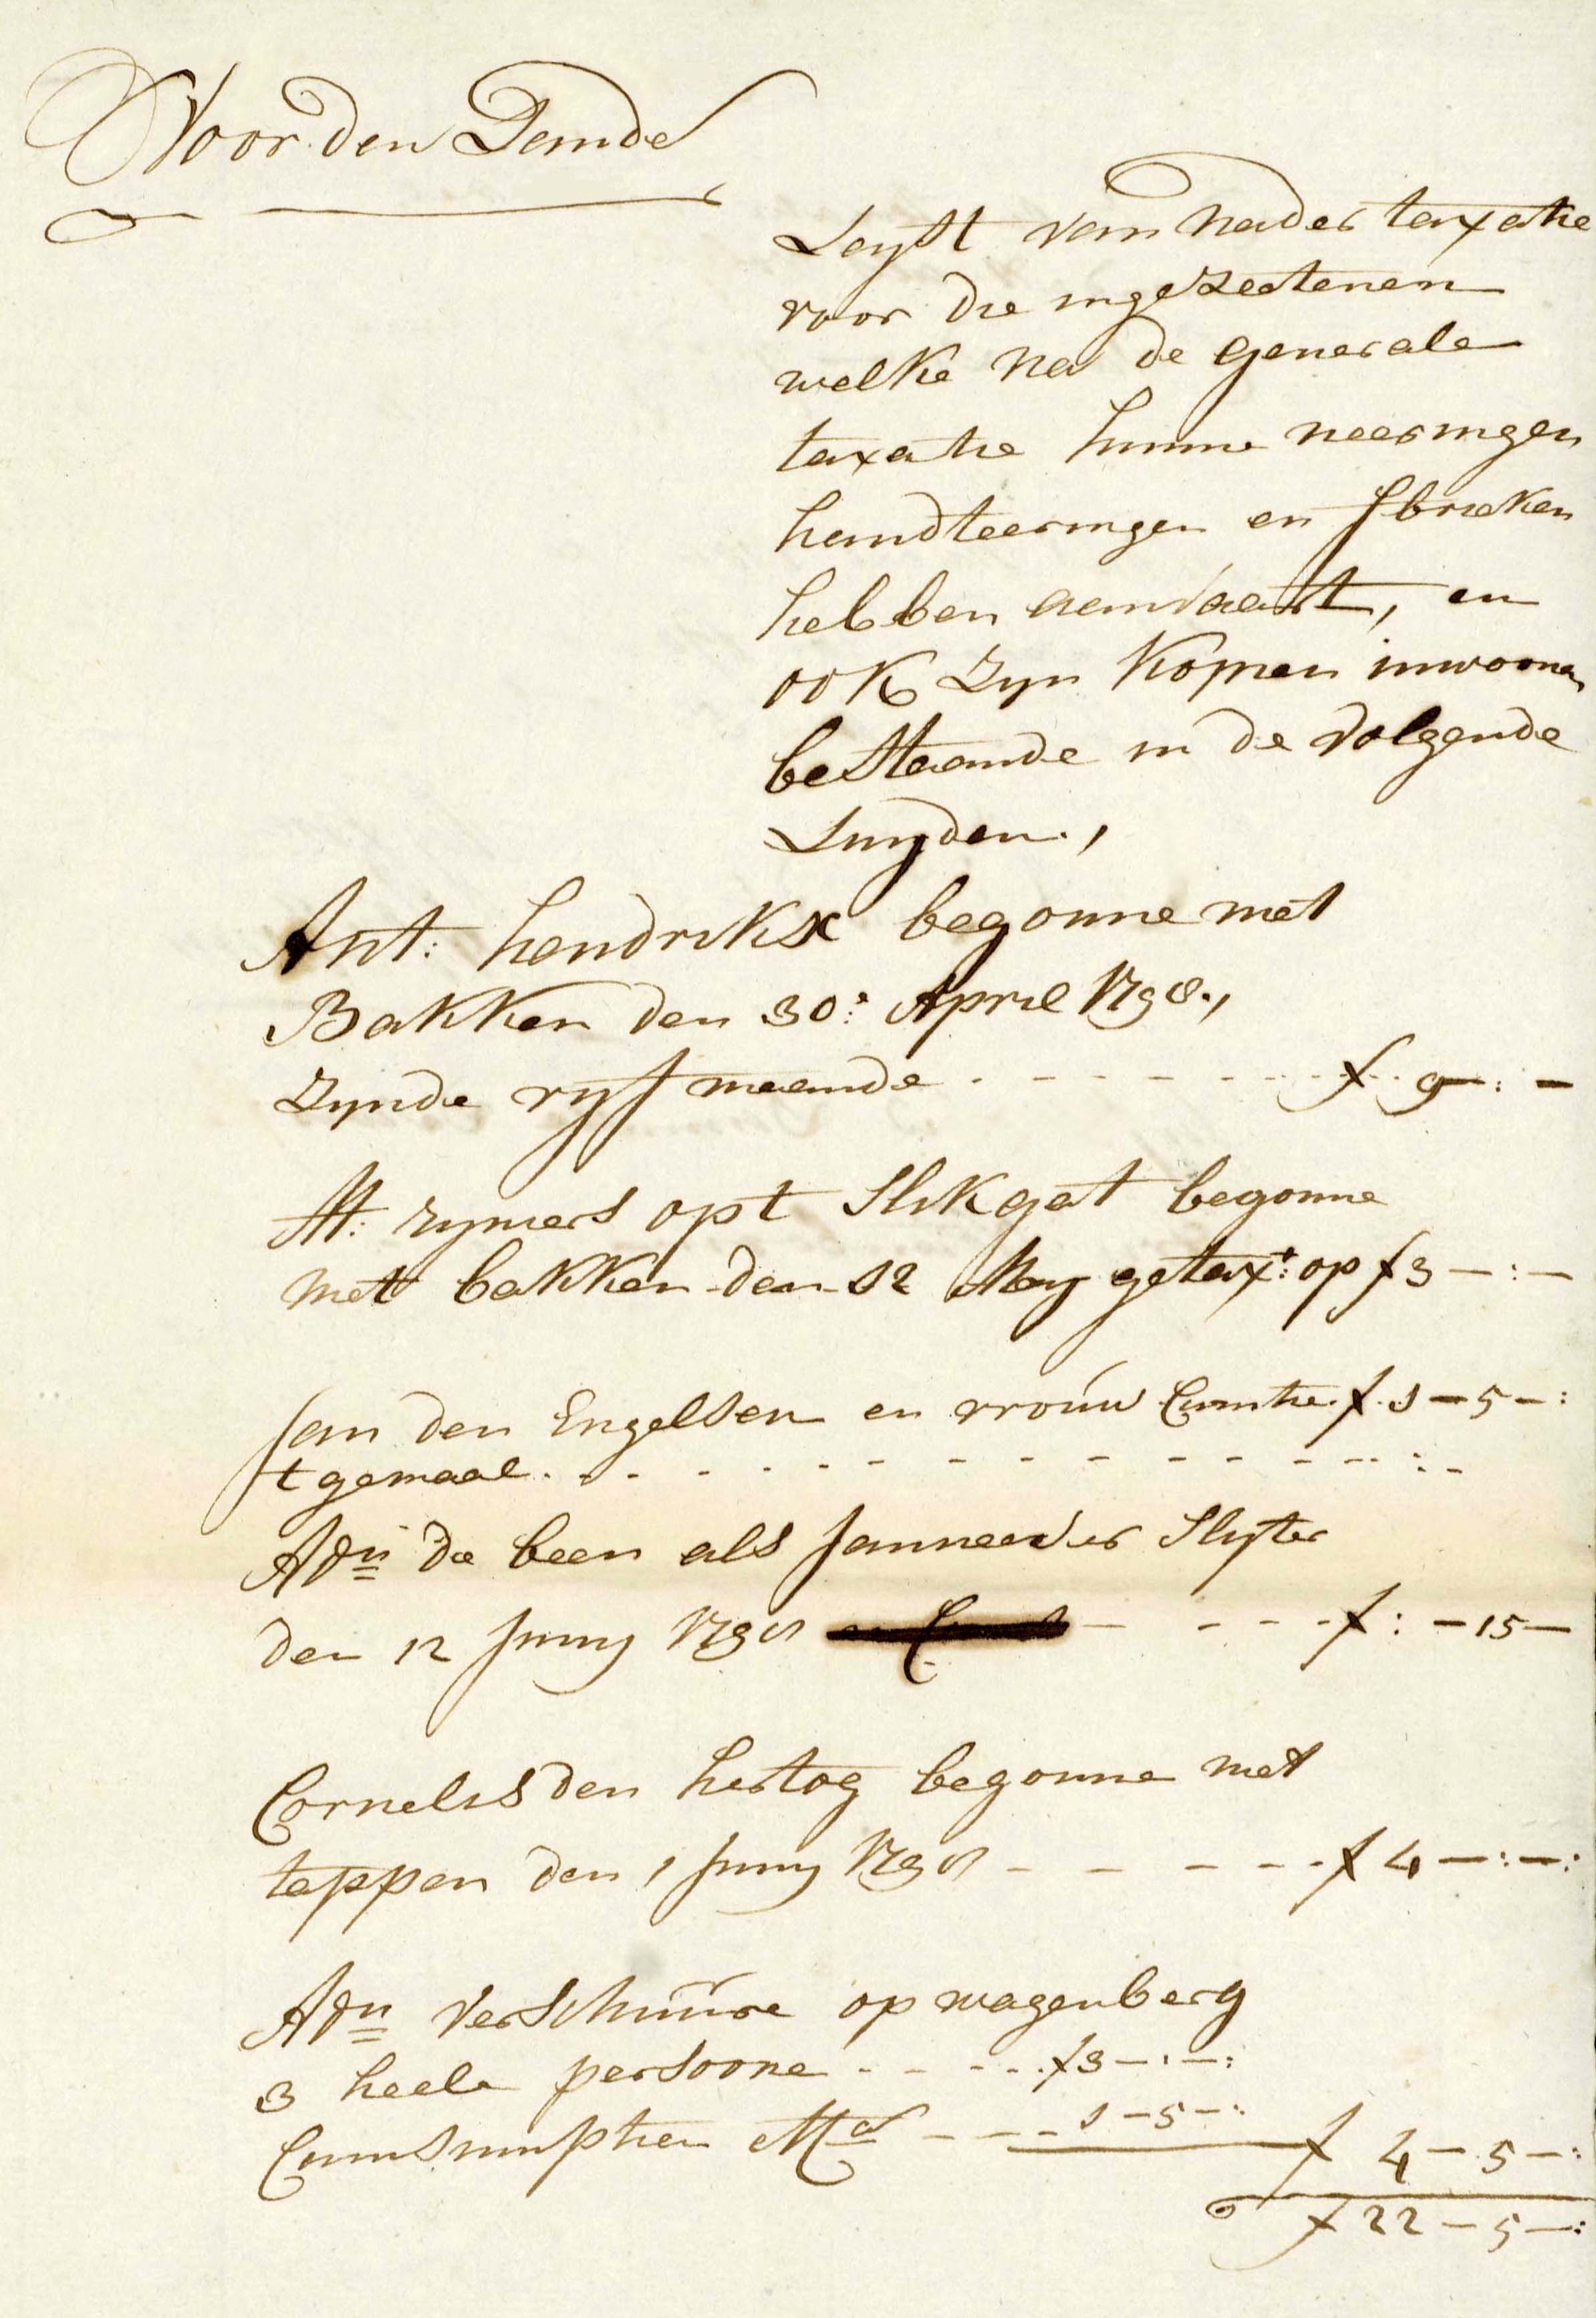 Voor den Lande
Leyst van nader taxatie
voor die ingezeetenen
welke na de generale
taxatie hunne neeringen
handteeringen en fbrieken
hebben aenvaert, en
ook zyn komen inwoonen
bestaande in de volgende
Luyden.,
Ant: hendrikx begonne met
Bakken den 30: April 1798.,
zynde vyf maande - - - - - - f. 9 - : -
At: rymers opt Slikgat begonne
met bakken den 12 May getaxt: op f 3 - : -
Jan den Engelsen en vrouw Cumtie. f. 1 - 5 - :
t gemaal. - - - - - - - - - - - - : -
Adn de been als Janneever Slyter
den 12 Juny 1798 - - - - f : - 15 -
Cornelis den hertog begonne met
tappen den 1 Juny 1798 - - - - - f 4 - : - :
Adn Verschuure op wagenberg
3 heele persoone - - - - f 3 - : - :
Cumsumptien - - - 1 - 5 - :
f 4 - 5 - :
f 22 - 5 - :